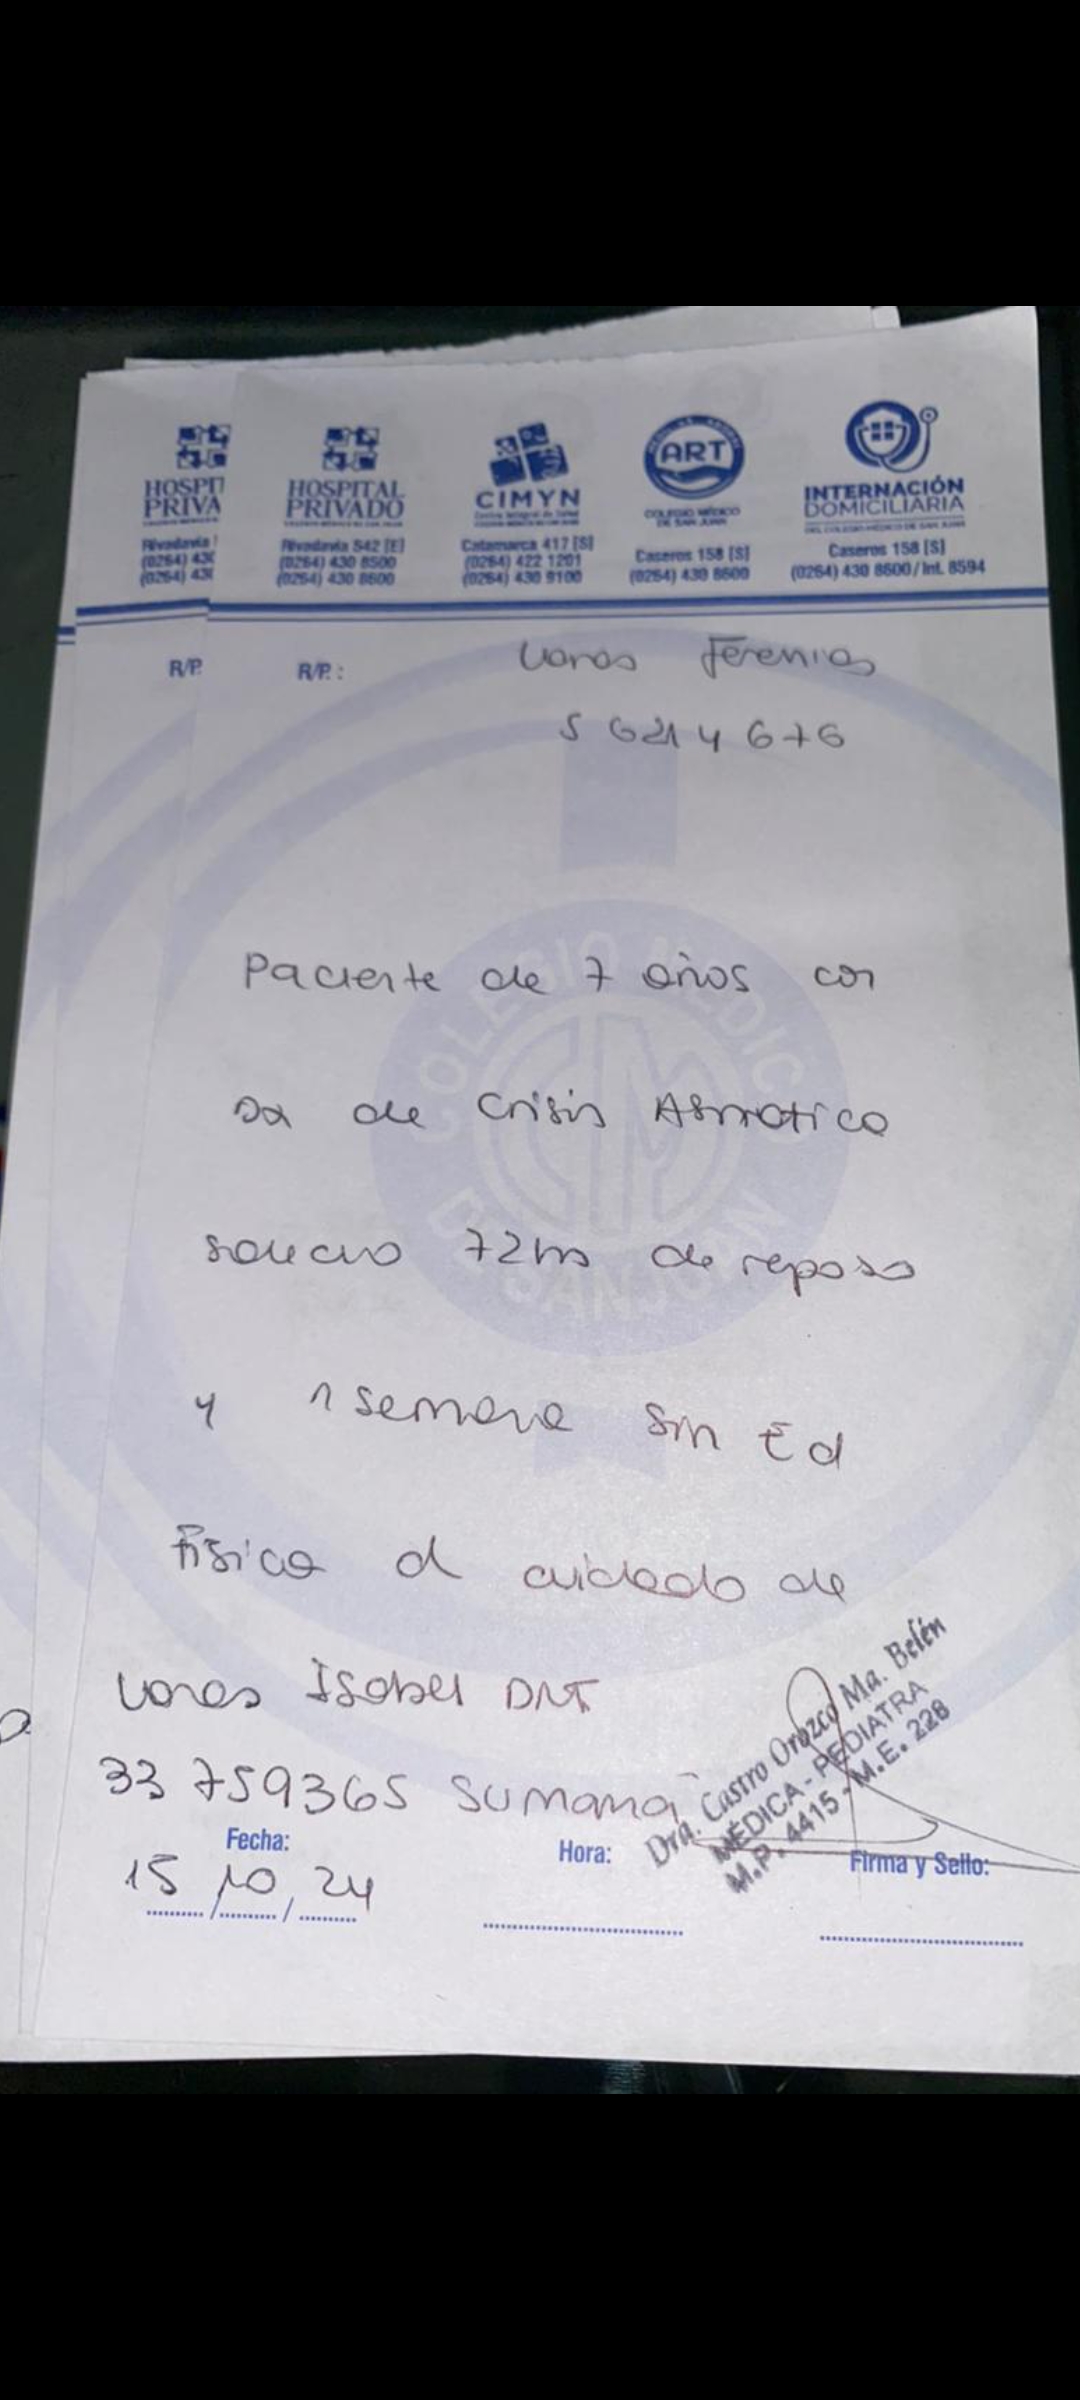 HOSPIT
PRIVA
HOSPITAL
PRIVADO
CIMYN
ART
INTERNACIÓN
DOMICILIARIA
COLEGIO MÉDICO
DE SAN JUAN
Rivadavia
(0264) 430
(0264) 430
Rivadavia 542 [E]
(0264) 430 8500
(0264) 430 8600
Catamarca 417 [S]
(0264) 422 1201
(0264) 430 9100
Caseros 158 [S]
(0264) 430 8600
Caseros 158 [S]
(0264) 430 8600 / Int. 8594
R/P.
R/P.:
Varas Jeremias
56214676
COLEGIO MÉDICO
DE SAN JUAN
Paciente de 7 años con
Dx de Crisis Asmatica
solicito 72hs de reposo
y 1 semana sin Ed
Fisica al cuidado de
Varas Isabel DNI
33759365 su mamá
Dra. Castro Orozco Ma. Belén
MÉDICA - PEDIATRA
M.P. 4415 - M.E. 228
Fecha:
Hora:
Firma y Sello:
15/10/24